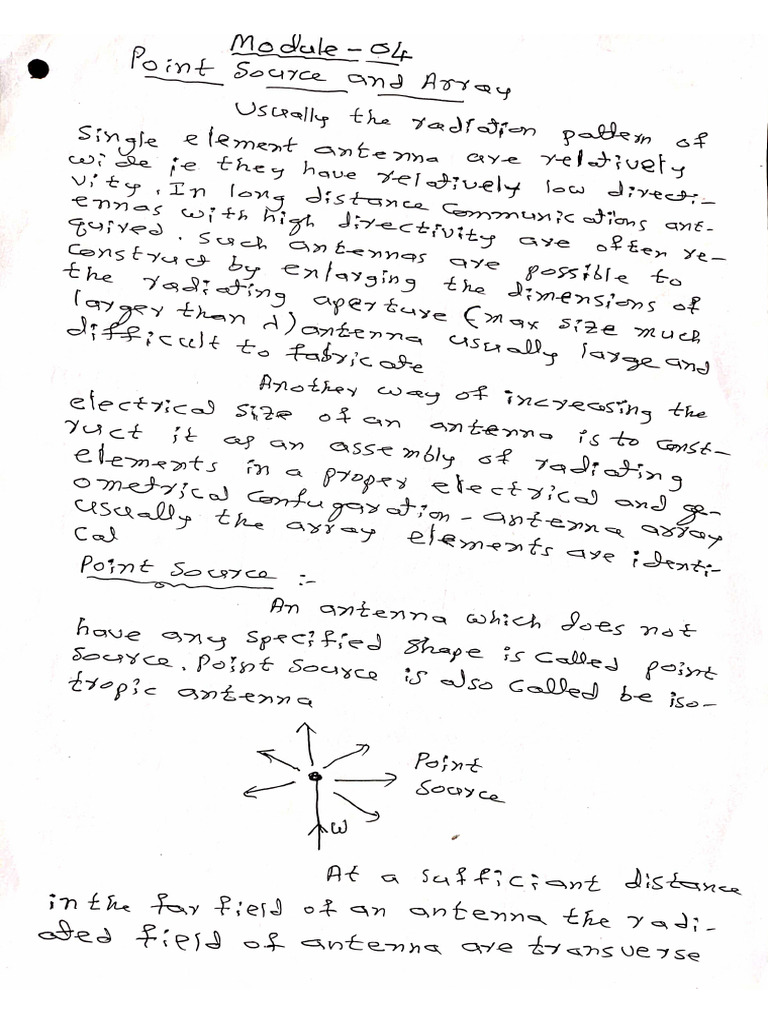 Module-04
Point Source and Array
Usually the radiation pattern of
Single element antenna are relatively
wide ie they have relatively low directi-
vity. In long distance Communications ant-
ennas with high directivity are often re-
quired. Such antennas are possible to
construct by enlarging the dimensions of
the radiating aperture (max size much
larger than λ) antenna usually large and
difficult to fabricate
Another way of increasing the
electrical size of an antenna is to const-
ruct it as an assembly of radiating
elements in a proper electrical and ge-
ometrical confugaration - antenna array
usually the array elements are identi-
cal
Point Source :-
An antenna which does not
have any specified shape is called point
source. Point source is also called be iso-
tropic antenna
Point
Source
W
At a sufficiant distance
in the far field of an antenna the radi-
ated field of antenna are transverse